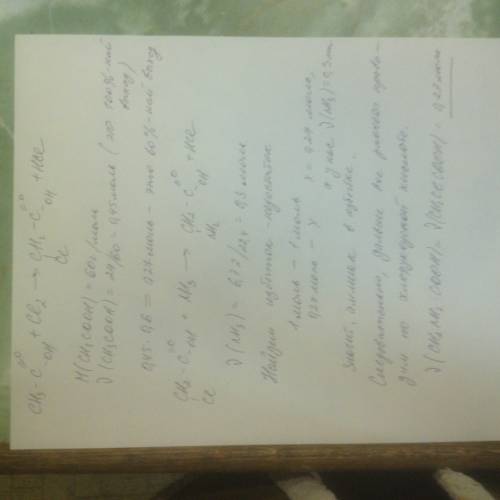 CH3 - C =O -OH + Cl2 → CH2 - C =O -OH + HCl
Cl
M(CH3COOH) = 60 г/моль
∂(CH3COOH) = 27/60 = 0,45 моль (это 100%-ный выход)
0,45 · 0,6 = 0,27 моль - это 60%-ный выход
CH2 - C =O -OH + NH3 → CH2 - C =O -OH + HCl
Cl NH2
∂(NH3) = 6,72/22,4 = 0,3 моль
Найдем избыток - недостаток
1 моль - 1 моль
0,27 моль - x x = 0,27 моль,
а у нас ∂(NH3) = 0,3 моль
Значит, аммиак в избытке.
Следовательно, дальше все расчеты прово-
дим по хлоруксусной кислоте.
∂(CH2NH2COOH) = ∂(CH2ClCOOH) = 0,27 моль